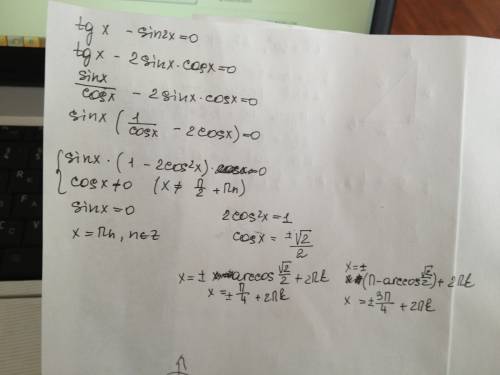 tg x - sin2x=0
tg x - 2sinx·cosx=0
sinx/cosx - 2sinx·cosx=0
sinx(1/cosx - 2cosx)=0
{ sinx·(1-2cos²x)=0
cosx≠0 (x≠ π/2 + πn)
sinx=0
x=πn, n∈Z
2cos²x=1
cosx= ±√2/2
x=± arccos √2/2 + 2πk
x=± π/4 + 2πk
x=±
(π-arccos √2/2)+2πk
x=± 3π/4 + 2πk